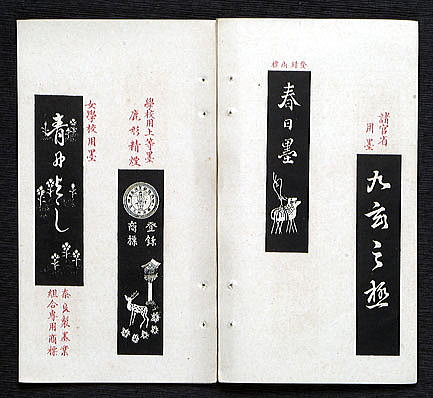 諸官省
用墨
九玄之極
春日墨
學校用上等墨
鹿形精煙
登錄
商標
女學校用墨
青丹よし
奈良製墨業
組合専用商標